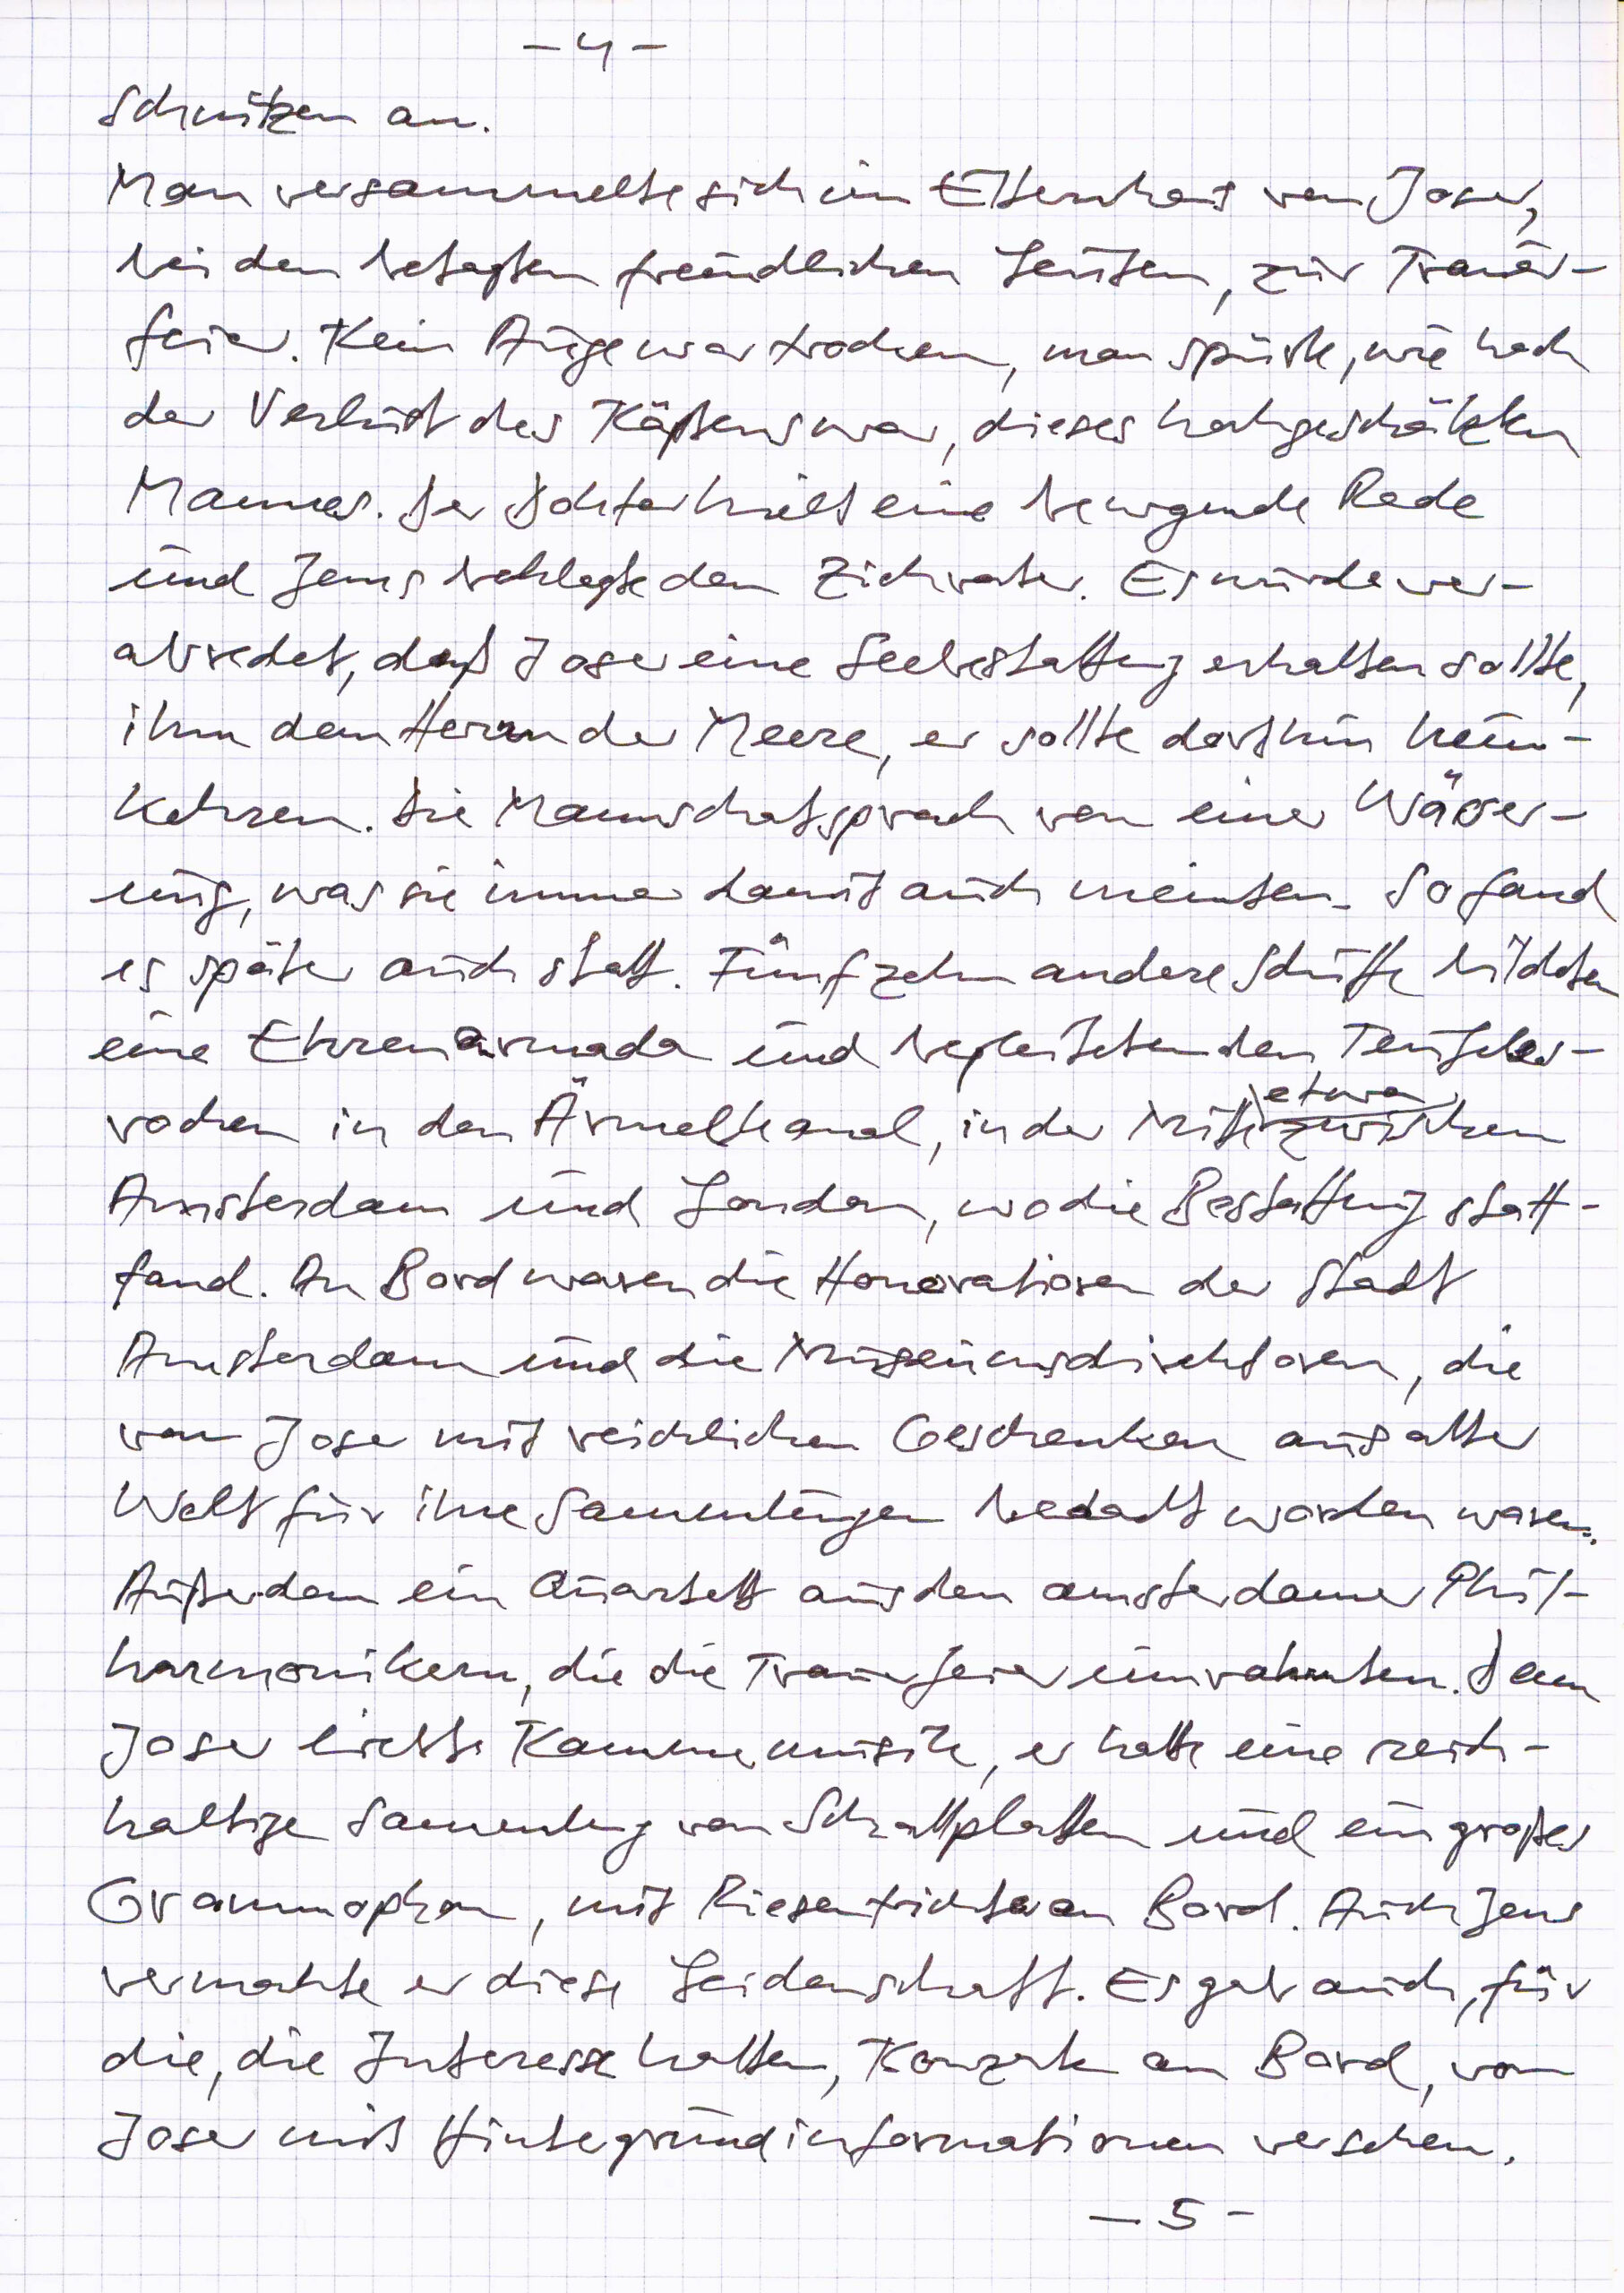 – 4 –
Schnitzen an.
Man versammelte sich im Elternhaus von Joser,
bei den betagten freundlichen Leuten, zur Trauer-
feier. Kein Auge war trocken, man spürte, wie hoch
der Verlust des Käptens war, dieses hochgeschätzten
Mannes. Der Doktor hielt eine bewegende Rede
und Jens beklagte den Ziehvater. Es wurde ver-
abredet, daß Joser eine Seebestattung erhalten sollte,
ihm dem Herrn der Meere, er sollte dorthin heim-
kehren. Die Mannschaft sprach von einer Wäßer-
ung, was sie immer damit auch meinten. So fand
es später auch statt. Fünfzehn andere Schiffe bildeten
eine Ehrenarmada und begleiteten den Teufels-
rochen in den Ärmelkanal, in der Mitte etwa zwischen
Amsterdam und London, wo die Bestattung statt-
fand. An Bord waren die Honoratioren der Stadt
Amsterdam und die Museumsdirektoren, die
von Joser mit reichlichen Geschenken aus aller
Welt für ihre Sammlungen bedacht worden waren.
Außerdem ein Quartett aus den amsterdamer Phil-
harmonikern, die die Trauerfeier umrahmten. Denn
Joser liebte Kammermusik, er hatte eine reich-
haltige Sammlung von Schallplatten und ein großes
Grammophon, mit Riesentrichter an Bord. Auch Jens
vermachte er diese Leidenschaft. Es gab auch, für
die, die Interesse hatten, Konzerte an Bord, von
Joser mit Hintergrundinformationen versehen.
– 5 –